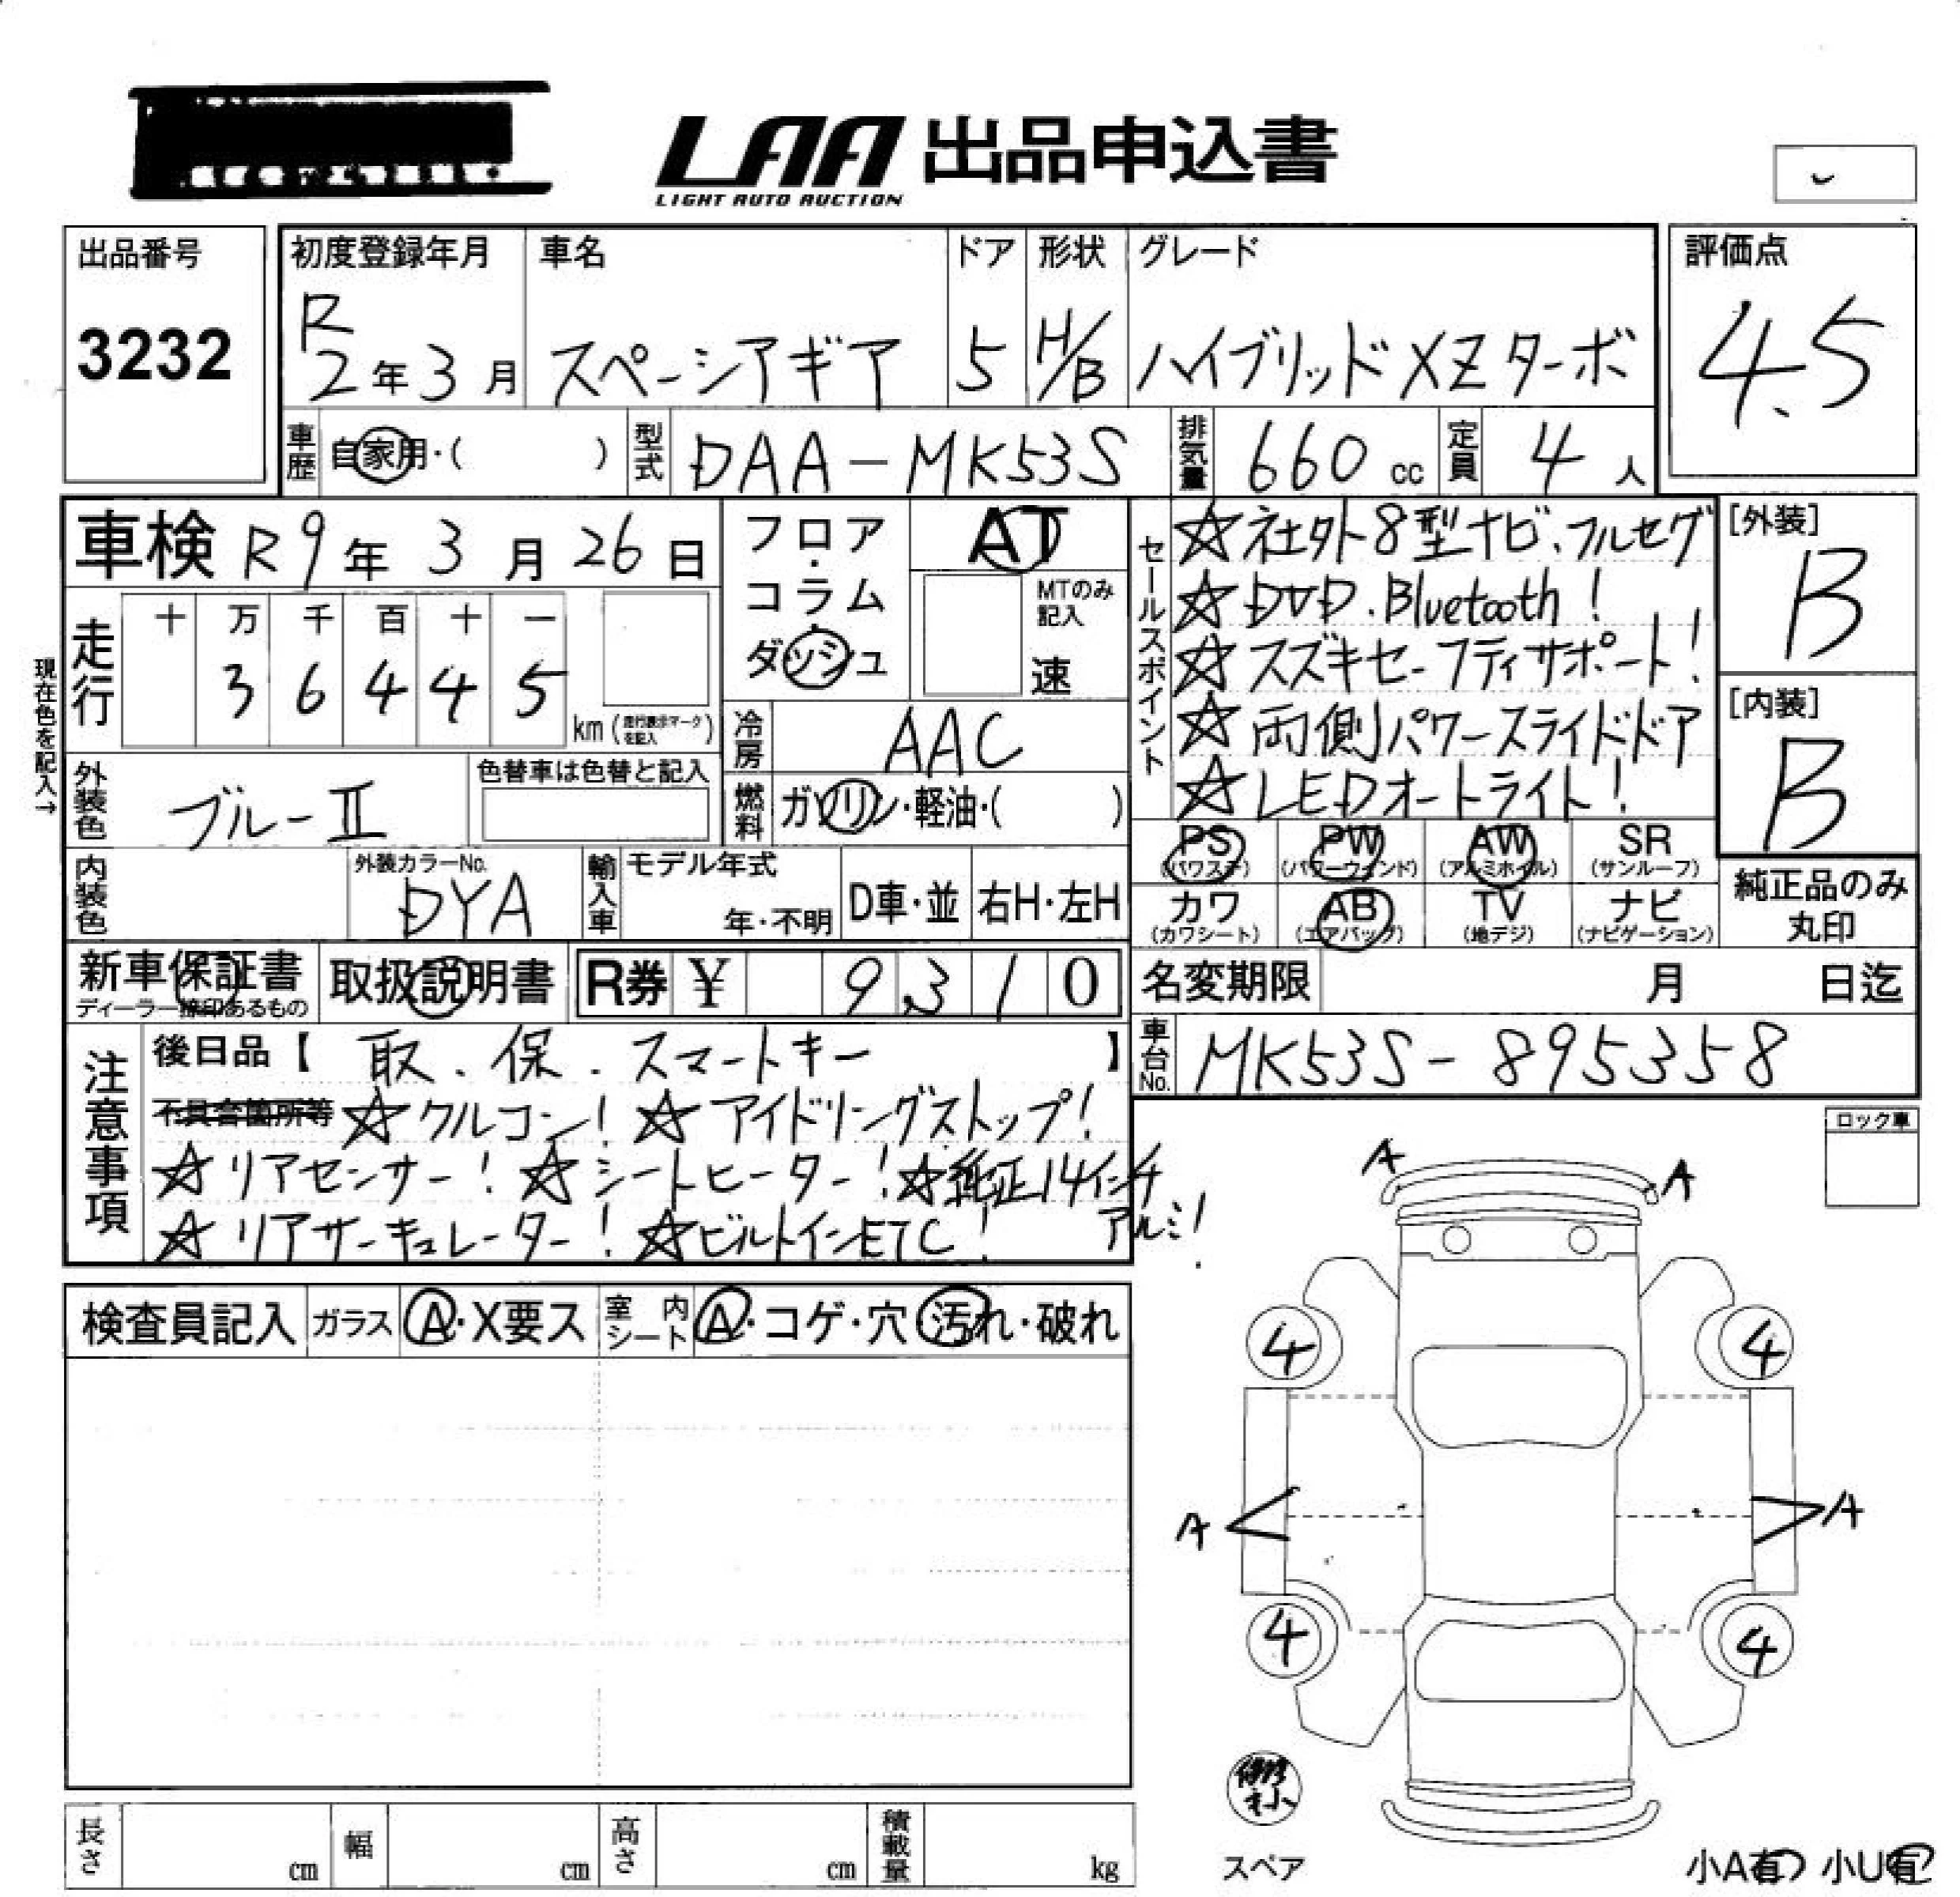 LAA 出品申込書
LIGHT AUTO AUCTION
出品番号
3232
初度登録年月
R
2年3月
車名
スペーシアギア
ドア
5
形状
H/B
グレード
ハイブリッドXZターボ
評価点
4.5
車歴 自家用・( )
型式 DAA-MK53S
排気量 660 cc
定員 4 人
車検 R9年3月26日
フロア・コラム
ダッシュ
AT
MTのみ記入
速
走行
十 万 千 百 十 一
3 6 4 4 5
km (走行表示マークを記入)
現在色を記入→
冷房 AAC
外装色 ブルーⅡ
色替車は色替と記入
燃料 ガソリン・軽油・( )
内装色
外装カラーNo.
DYA
輸入車
モデル年式
年・不明
D車・並
右H・左H
セールスポイント
☆社外8型ナビ、フルセグ
☆DVD.Bluetooth!
☆スズキセーフティサポート!
☆両側パワースライドドア
☆LEDオートライト!
[外装]
B
[内装]
B
PS (パワステ)
PW (パワーウィンド)
AW (アルミホイル)
SR (サンルーフ)
カワ (カワシート)
AB (エアバッグ)
TV (地デジ)
ナビ (ナビゲーション)
純正品のみ
丸印
新車保証書
ディーラー捺印あるもの
取扱説明書
R券 ¥ 9,310
名変期限 月 日迄
車台No. MK53S-895358
注意事項
後日品【 取.保.スマートキー 】
不具合箇所等 ☆クルコン! ☆アイドリングストップ!
☆リアセンサー! ☆シートヒーター! ☆純正14インチ
アルミ!
☆リアサーキュレーター! ☆ビルトインETC!
ロック車
検査員記入
ガラス A・X要ス
室内シート A・コゲ・穴・汚れ・破れ
A
A
4
4
A
A
4
4
スペア
小A有 小U有
長さ cm
幅 cm
高さ cm
積載量 kg